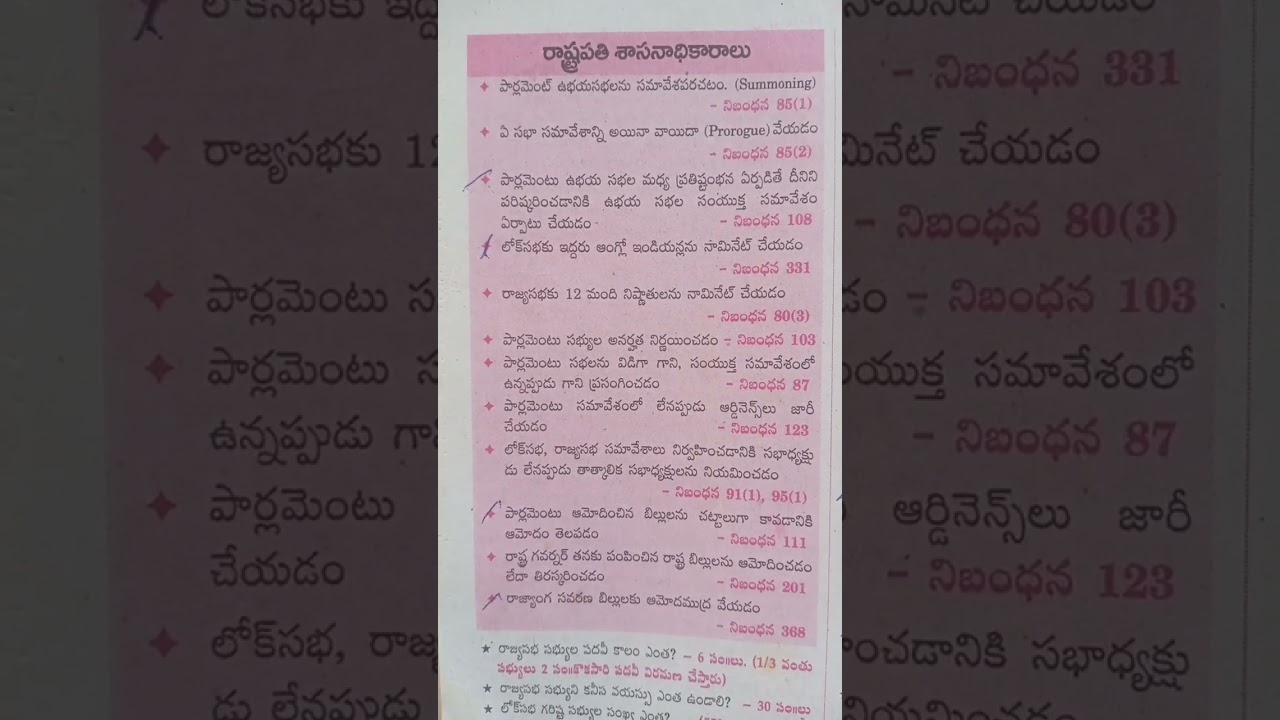 రాష్ట్రపతి శాసనాధికారాలు
✦ పార్లమెంట్ ఉభయసభలను సమావేశపరచటం. (Summoning)
– నిబంధన 85(1)
✦ ఏ సభా సమావేశాన్ని అయినా వాయిదా (Prorogue) వేయడం
– నిబంధన 85(2)
✦ పార్లమెంటు ఉభయ సభల మధ్య ప్రతిష్టంభన ఏర్పడితే దీనిని
పరిష్కరించడానికి ఉభయ సభల సంయుక్త సమావేశం
ఏర్పాటు చేయడం – నిబంధన 108
✦ లోక్‌సభకు ఇద్దరు ఆంగ్లో ఇండియన్లను నామినేట్ చేయడం
– నిబంధన 331
✦ రాజ్యసభకు 12 మంది నిష్ణాతులను నామినేట్ చేయడం
– నిబంధన 80(3)
✦ పార్లమెంటు సభ్యుల అనర్హత నిర్ణయించడం – నిబంధన 103
✦ పార్లమెంటు సభలను విడిగా గాని, సంయుక్త సమావేశంలో
ఉన్నప్పుడు గాని ప్రసంగించడం – నిబంధన 87
✦ పార్లమెంటు సమావేశంలో లేనప్పుడు ఆర్డినెన్స్‌లు జారీ
చేయడం – నిబంధన 123
✦ లోక్‌సభ, రాజ్యసభ సమావేశాలు నిర్వహించడానికి సభాధ్యక్షు
డు లేనప్పుడు తాత్కాలిక సభాధ్యక్షులను నియమించడం
– నిబంధన 91(1), 95(1)
✦ పార్లమెంటు ఆమోదించిన బిల్లులను చట్టాలుగా కావడానికి
ఆమోదం తెలపడం – నిబంధన 111
✦ రాష్ట్ర గవర్నర్ తనకు పంపించిన రాష్ట్ర బిల్లులను ఆమోదించడం
లేదా తిరస్కరించడం – నిబంధన 201
✦ రాజ్యాంగ సవరణ బిల్లులకు ఆమోదముద్ర వేయడం
– నిబంధన 368
★ రాజ్యసభ సభ్యుల పదవీ కాలం ఎంత? – 6 సం॥లు. (1/3 వంతు
సభ్యులు 2 సం॥కొకసారి పదవీ విరమణ చేస్తారు)
★ రాజ్యసభ సభ్యుని కనీస వయస్సు ఎంత ఉండాలి? – 30 సం॥లు
★ లోక్‌సభ గరిష్ట సభ్యుల సంఖ్య ఎంత?